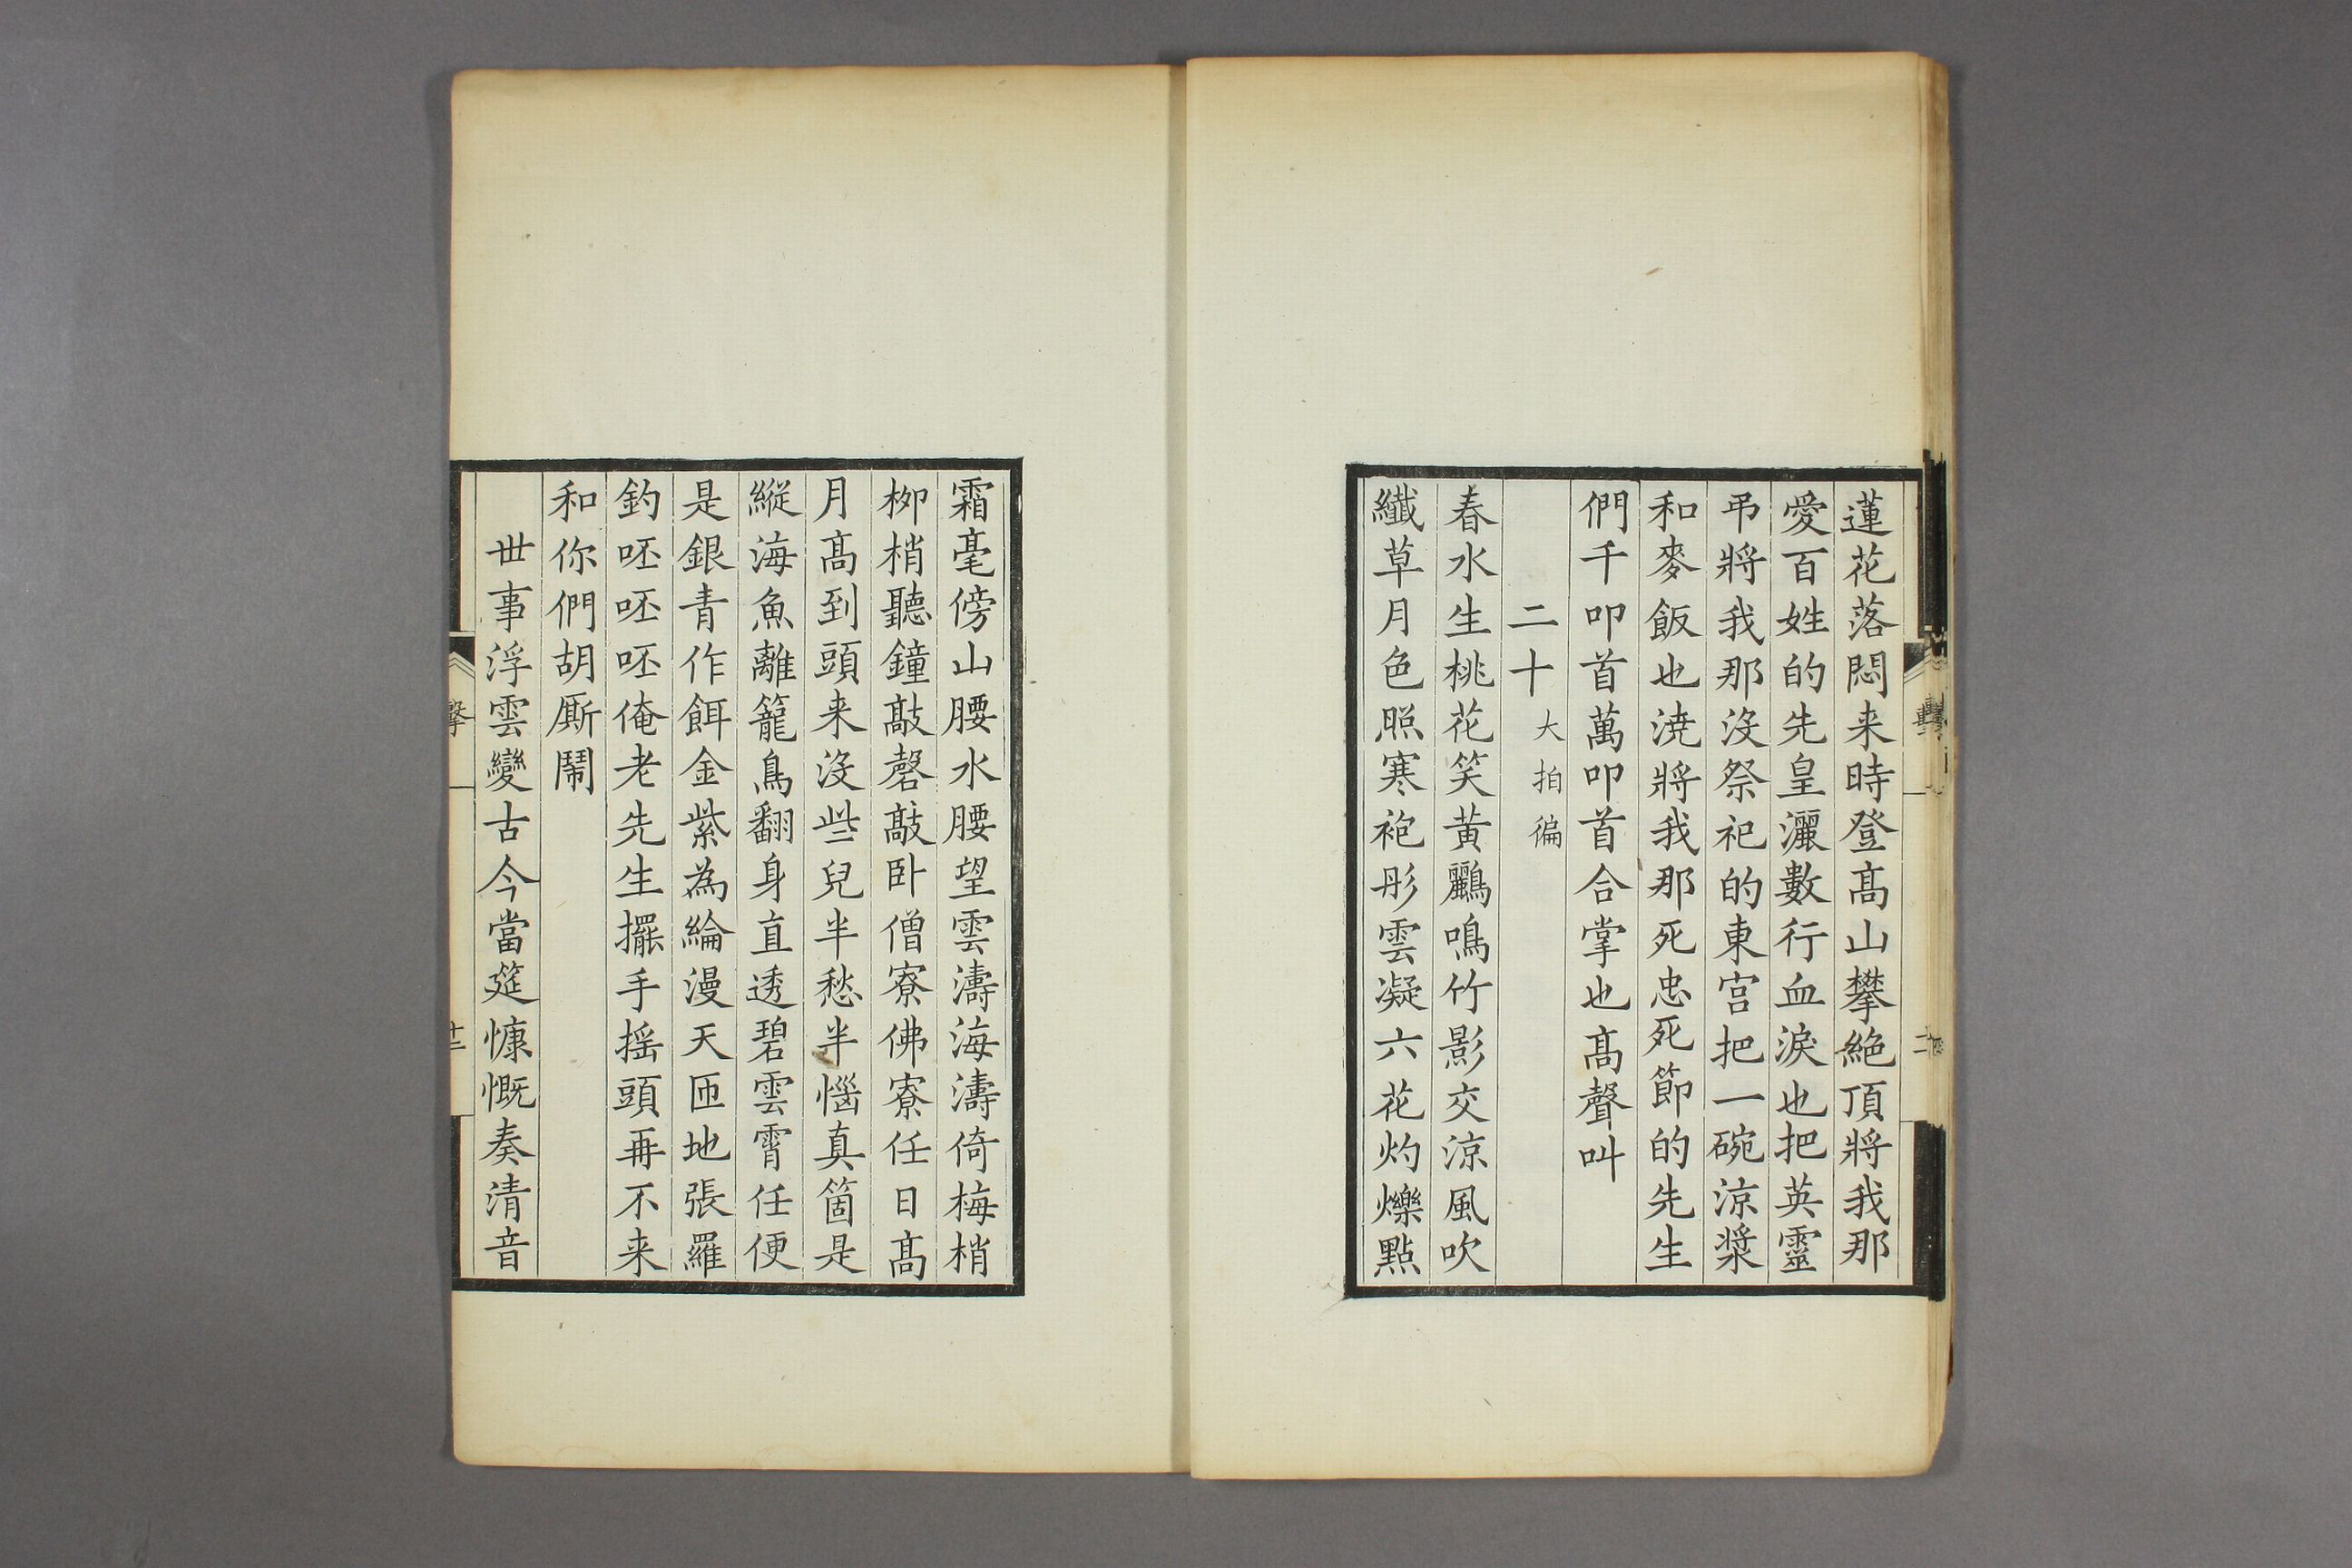 蓮花落悶来時登髙山攀絶頂將我那
愛百姓的先皇灑數行血淚也把英靈
弔將我那沒祭祀的東宫把一碗涼漿
和麥飯也澆將我那死忠死節的先生
們千叩首萬叩首合掌也髙聲叫
二十大拍徧
春水生桃花笑黃鸝鳴竹影交涼風吹
纖草月色照寒袍彤雲凝六花灼爍點
霜毫傍山腰水腰望雲濤海濤倚梅梢
柳梢聽鐘敲磬敲卧僧寮佛寮任日髙
月髙到頭来沒些兒半愁半惱真箇是
縱海魚離籠鳥翻身直透碧雲霄任便
是銀青作餌金紫為綸漫天匝地張羅
釣呸呸呸俺老先生擺手摇頭再不来
和你們胡厮鬧
世事浮雲變古今當筵慷慨奏清音